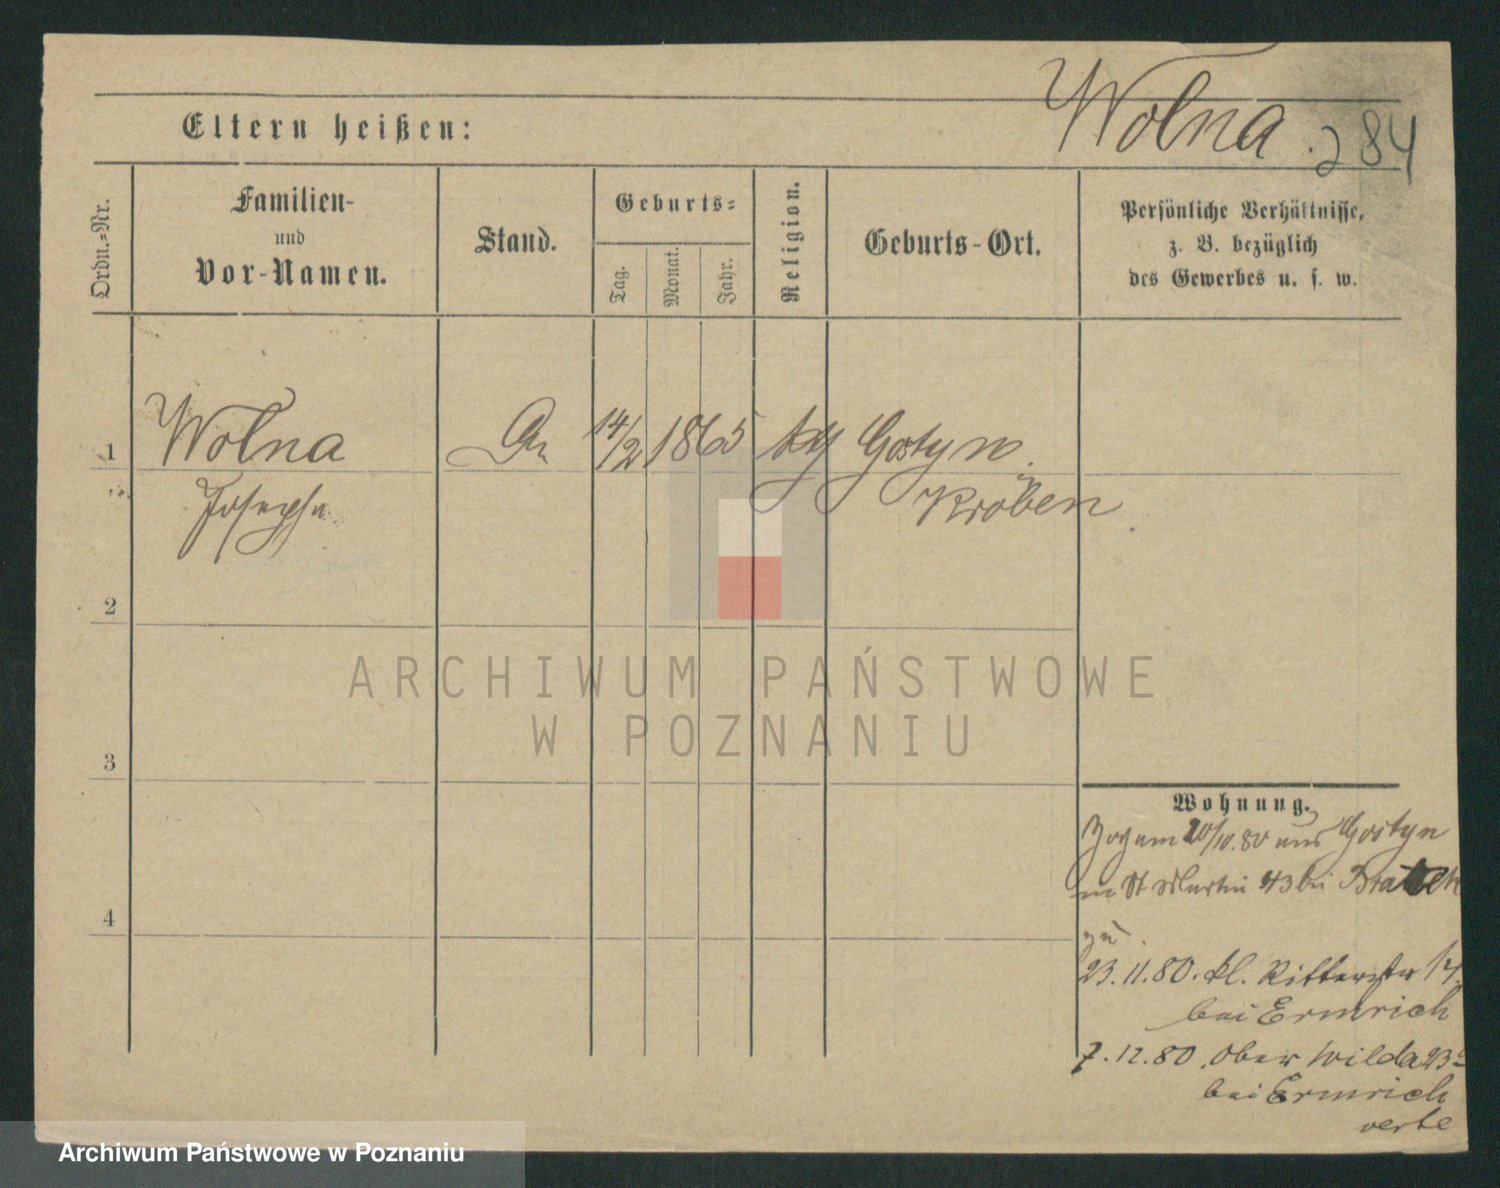 Wolna
284
Eltern heißen:
Ordn.-Nr.
Familien-
und
Vor-Namen.
Stand.
Geburts-
Tag.
Monat.
Jahr.
Religion.
Geburts-Ort.
Persönliche Verhältnisse,
z. B. bezüglich
des Gewerbes u. s. w.
1
Wolna
Josepha
14/2 1865
kth
Gostyn
Kröben
2
3
4
Wohnung.
Zog am 20/10.80 aus Gostyn
St Martin 43 bei
zu
23.11.80. kl. Ritterstr 14.
bei Ermrich
7.12.80. Ober Wilda 23
bei Ermrich
verte
ARCHIWUM PAŃSTWOWE
W POZNANIU
Archiwum Państwowe w Poznaniu